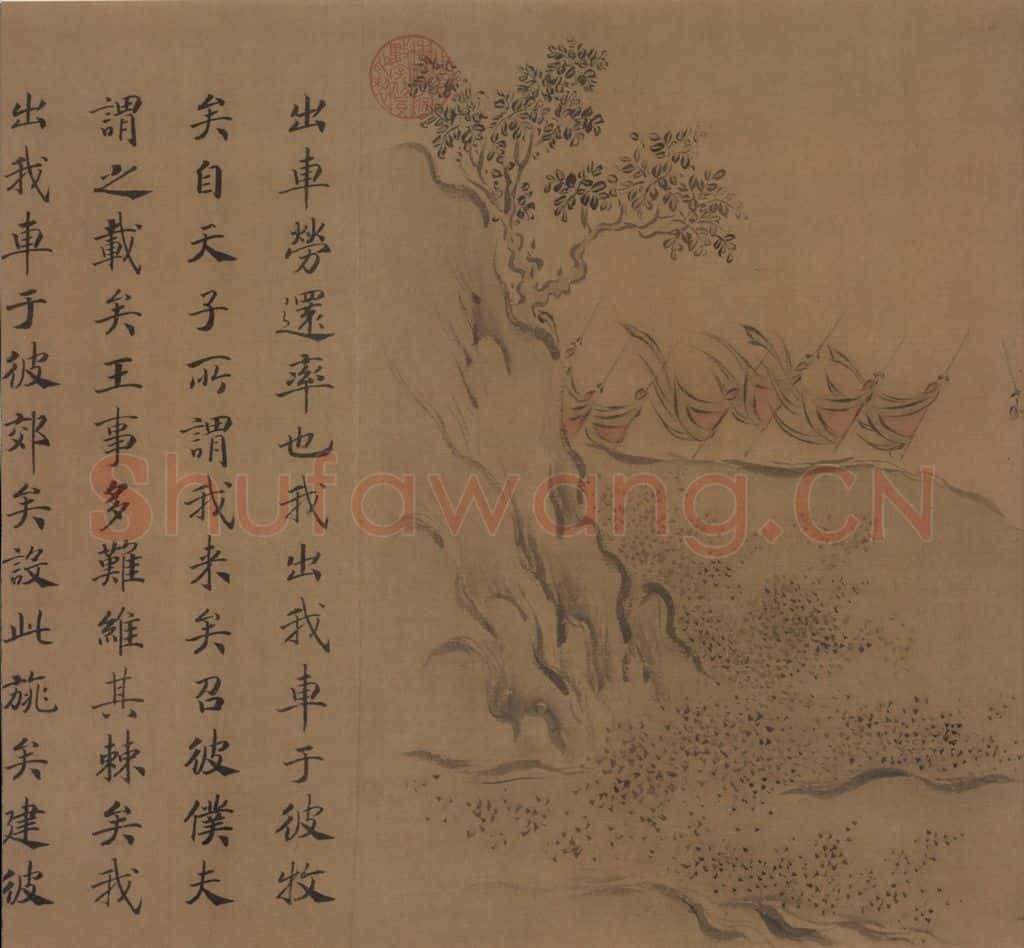 出車勞還率也我出我車于彼牧
矣自天子所謂我来矣召彼僕夫
謂之載矣王事多難維其棘矣我
出我車于彼郊矣設此旐矣建彼
Shufawang.CN